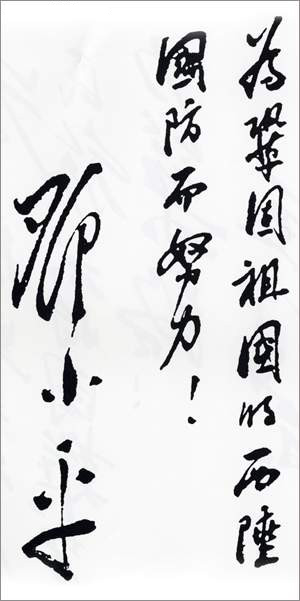 为鞏固祖國的西陲
國防而努力！
邓小平